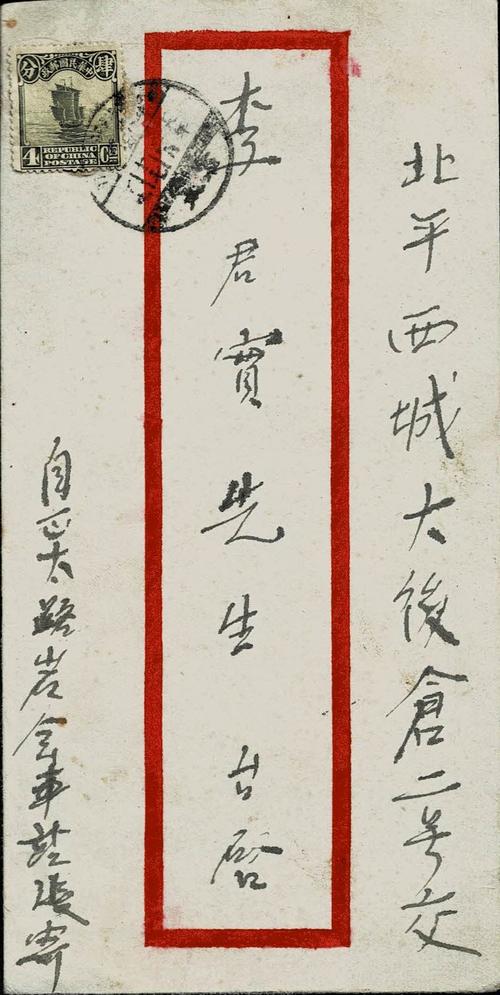 北平西城大後倉二号交
李君實先生台啓
自正太路岩会車站張寄
中華民國郵政
肆分
4
REPUBLIC
OF CHINA
POSTAGE